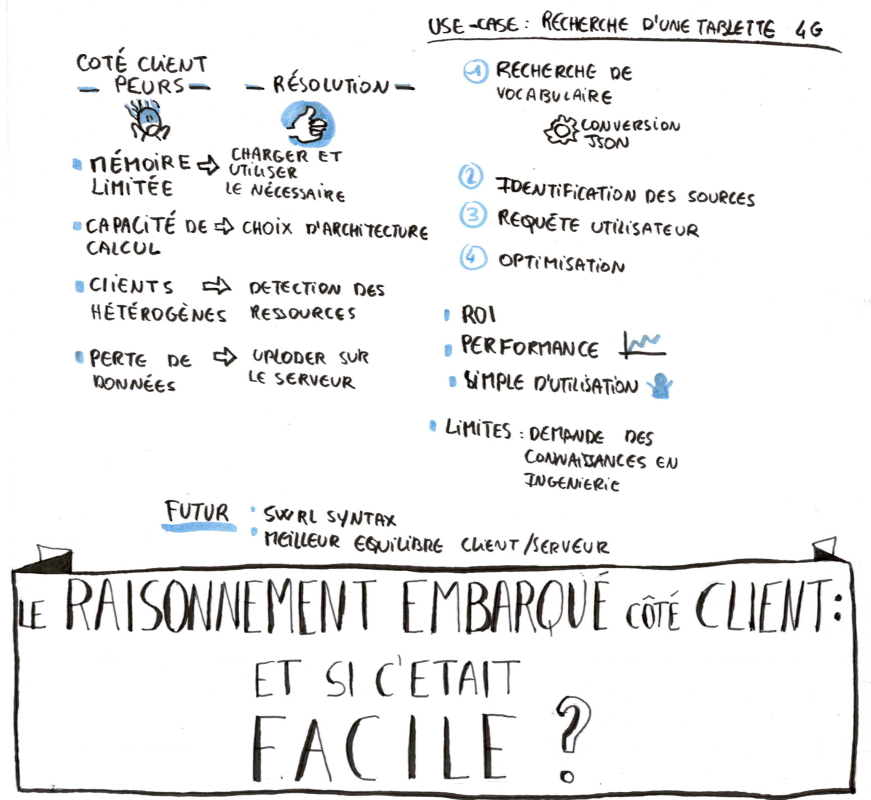 USE-CASE : RECHERCHE D'UNE TABLETTE 4G
COTÉ CLIENT
PEURS
RÉSOLUTION
MÉMOIRE LIMITÉE ⇨ CHARGER ET UTILISER LE NÉCESSAIRE
CAPACITÉ DE CALCUL ⇨ CHOIX D'ARCHITECTURE
CLIENTS HÉTÉROGÈNES ⇨ DETECTION DES RESSOURCES
PERTE DE DONNÉES ⇨ UPLODER SUR LE SERVEUR
1 RECHERCHE DE
VOCABULAIRE
CONVERSION
JSON
2 IDENTIFICATION DES SOURCES
3 REQUÊTE UTILISATEUR
4 OPTIMISATION
ROI
PERFORMANCE
SIMPLE D'UTILISATION
LIMITES : DEMANDE DES
CONNAISSANCES EN
INGENIERIE
FUTUR : SWRL SYNTAX
MEILLEUR EQUILIBRE CLIENT/SERVEUR
LE RAISONNEMENT EMBARQUÉ CÔTÉ CLIENT:
ET SI C'ETAIT
FACILE ?